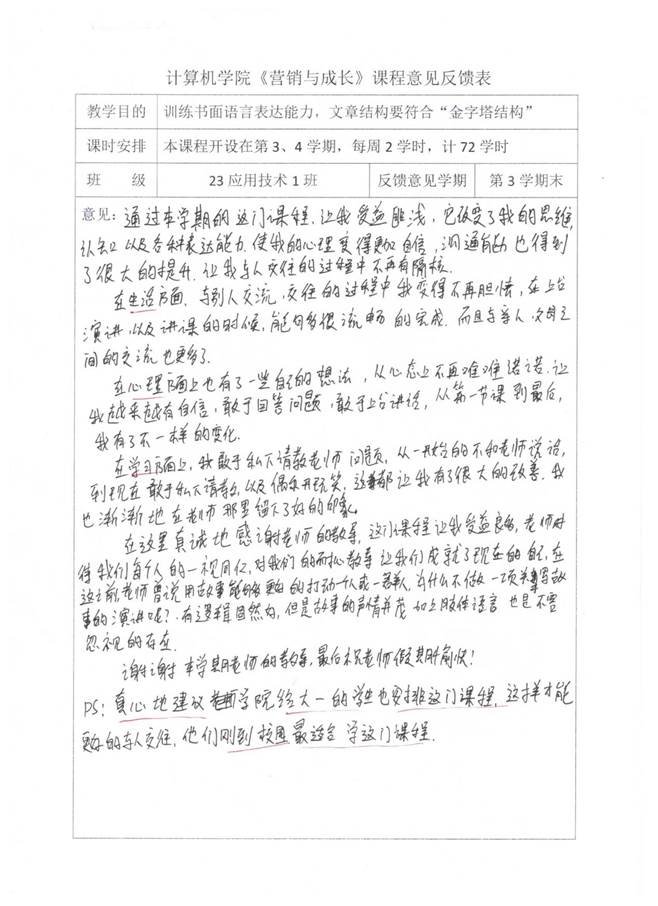 计算机学院《营销与成长》课程意见反馈表
教学目的 训练书面语言表达能力，文章结构要符合“金字塔结构”
课时安排 本课程开设在第 3、4 学期，每周 2 学时，计 72 学时
班 级 23 应用技术 1 班 反馈意见学期 第 3 学期末
意见：通过本学期的这门课程，让我受益匪浅，它改变了我的思维，
认知以及各种表达能力，使我的心理变得更加自信，沟通能力也得到
了很大的提升，让我与人交往的过程中不再有隔核．
在生活方面，与别人交流，交往的过程中我变得不再胆怯，在上台
演讲，以及讲课的时候，能够多很流畅的完成．而且与亲人，父母之
间的交流也更多了．
在心理方面上也有了一些自己的想法，从心态上不再唯唯诺诺，让
我越来越有自信，敢于回答问题，敢于上台讲话，从第一节课到最后，
我有了不一样的变化．
在学习方面上，我敢于私下请教老师问题，从一开始的不和老师说话，
到现在敢于私下请教，以及偶尔开玩笑，这都让我有了很大的改善．我
也渐渐地在老师那里留下了好的印象．
在这里真诚地感谢老师的教导，这门课程让我受益良多，老师对
待我们每个人的一视同仁，对我们的教导让我们成就了现在的自己，在
这之前，老师曾说用故事能够更好的打动一个人或一群人，为什么不做一项故
事的演讲呢？有逻辑固然好，但是故事的声情并茂加上肢体语言也是不容
忽视的存在．
谢谢本学期老师的教导，最后祝老师假期愉快！
PS：真心地建议学院给大一的学生也安排这门课程，这样才能
更好的与人交往，他们刚到校园最适合学这门课程．